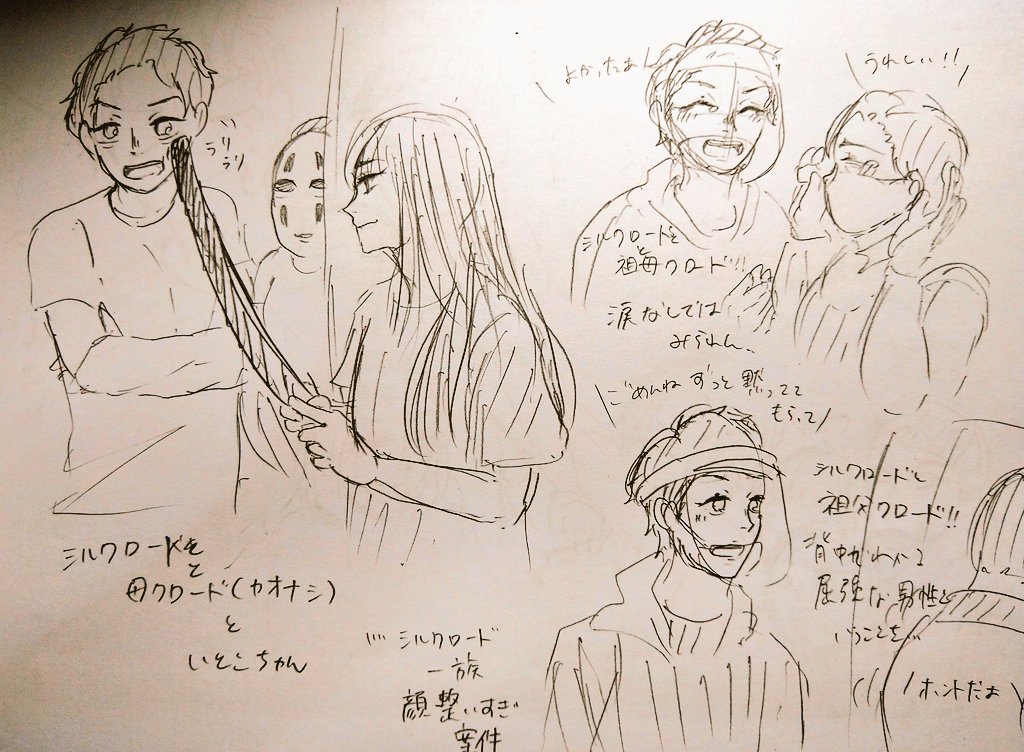 うりうり
シルクロードと
母クロード(カオナシ)
と
いとこちゃん
よかったあん
うれしい!!
シルクロードと
祖母クロード!!
涙なしでは
みられん..
ごめんねずっと黙ってて
もらって
シルクロードと
祖父クロード!!
背中でわかる
屈強な男性と
いうことを…
ホントだよ
シルクロード
一族
顔整いすぎ
案件